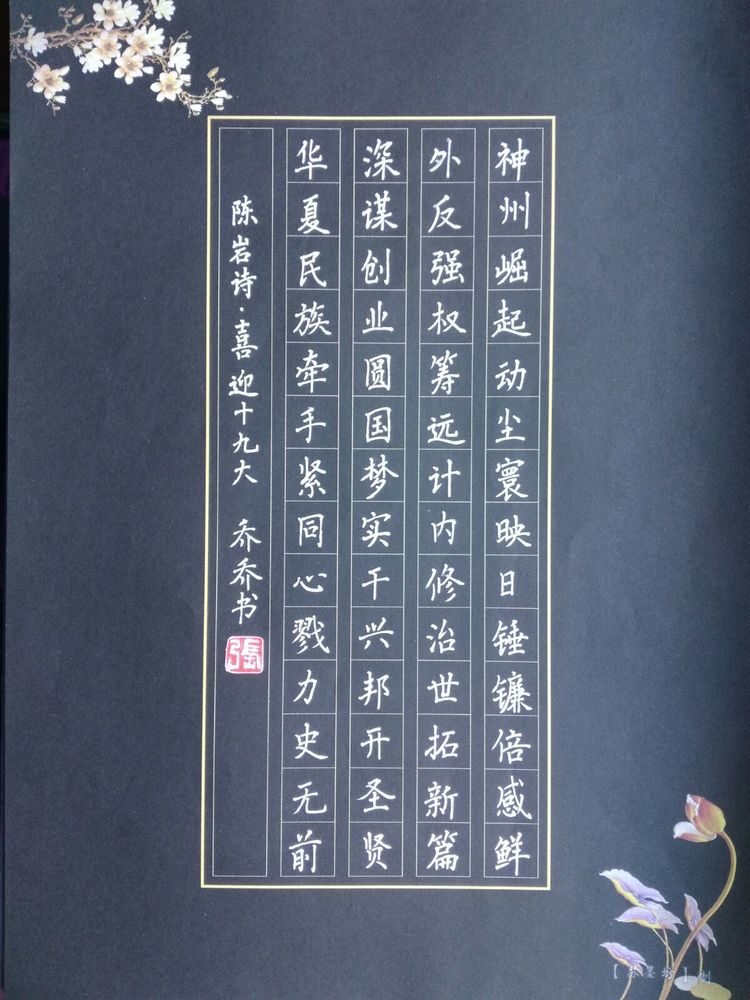 神州崛起动尘寰映日锤镰倍感鲜
外反强权筹远计内修治世拓新篇
深谋创业圆国梦实干兴邦开圣贤
华夏民族牵手紧同心戮力史无前
陈岩诗·喜迎十九大 乔乔书
張
【苏墨坊】制